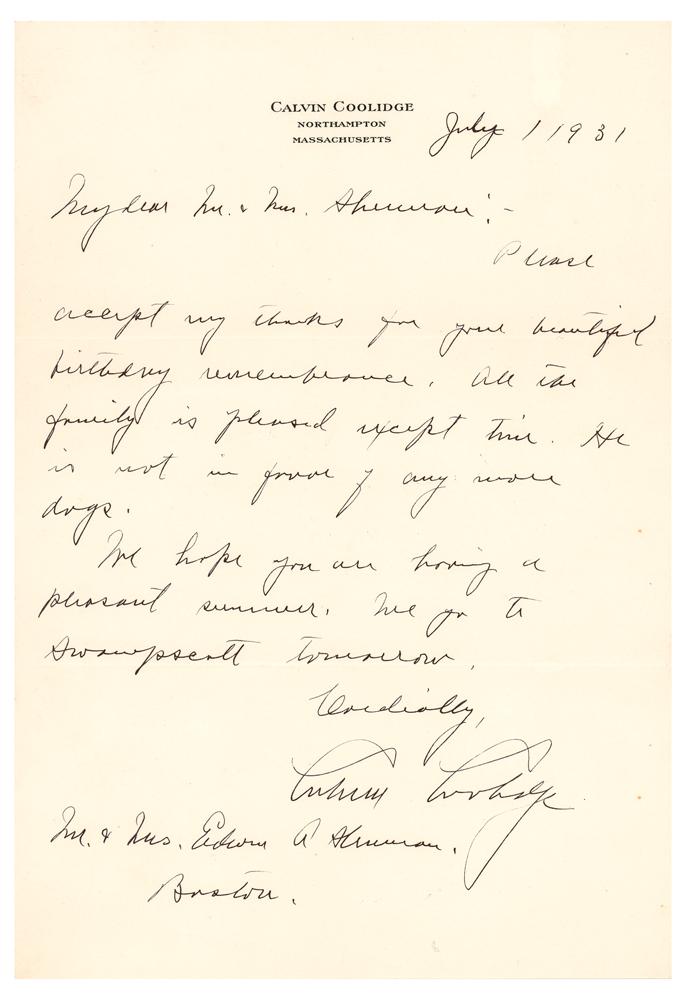 CALVIN COOLIDGE
NORTHAMPTON
MASSACHUSETTS
July 1 1931
My dear Mr. & Mrs. Sherman:-
Please
accept my thanks for your beautiful
birthday remembrance. All the
family is pleased except Tim. He
is not in favor of any more
dogs.
We hope you are having a
pleasant summer. We go to
Swampscott tomorrow.
Cordially,
Calvin Coolidge
Mr. & Mrs. Edwin A. Sherman.
Boston.